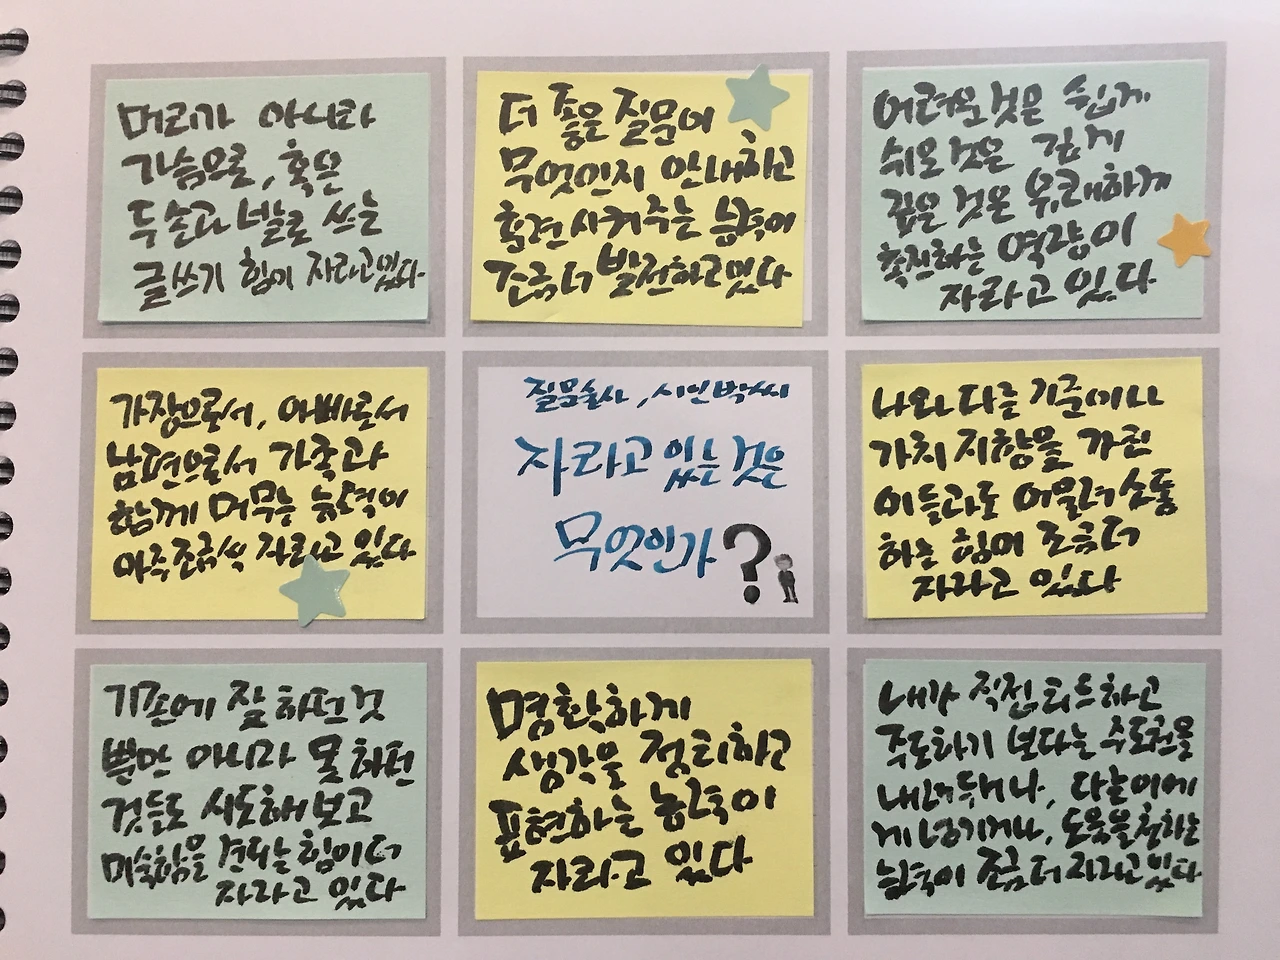 머리가 아니라
가슴으로, 혹은
두 손과 발로 쓰는
글쓰기 힘이 자라고 있다
더 좋은 질문이
무엇인지 안내하고
촉진시켜주는 능력이
조금 더 발전하고 있다
어려운 것은 쉽게
쉬운 것은 깊게
깊은 것은 유쾌하게
촉진하는 역량이
자라고 있다
가장으로서, 아빠로서
남편으로서 가족과
함께 머무는 능력이
아주 조금씩 자라고 있다
질문술사, 시인박씨
자라고 있는 것은
무엇인가?
나와 다른 기준이나
가치 지향을 가진
이들과도 어울려 소통
하는 힘이 조금 더
자라고 있다
기존에 잘 하던 것
뿐만 아니라 못 하던
것들도 시도해 보고
미숙함을 견디는 힘이 더
자라고 있다
명확하게
생각을 정리하고
표현하는 능력이
자라고 있다
내가 직접 리드하고
주도하기 보다는 주도권을
내려두거나, 다른 이에
게 넘기거나, 도움을 청하는
능력이 조금 더 자라고 있다